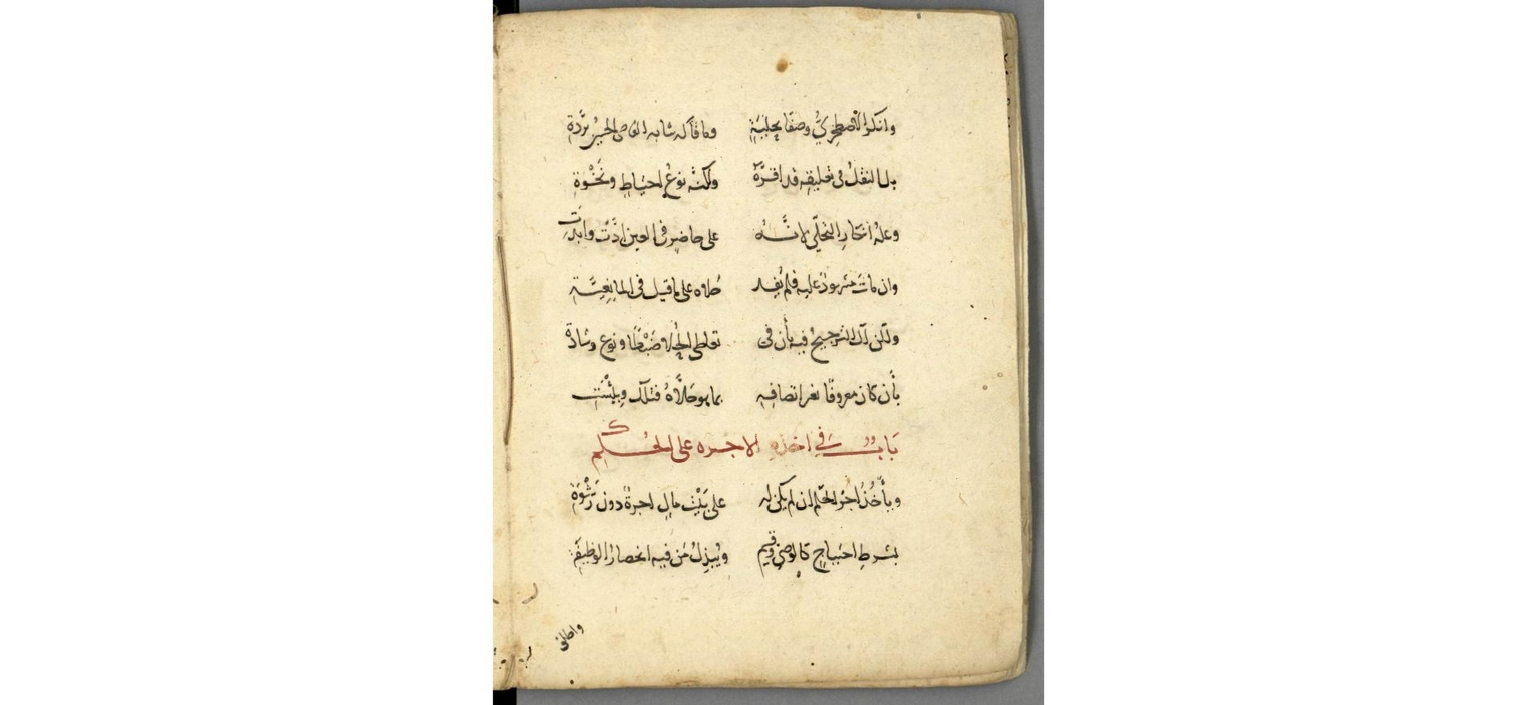 وانكر الاصطخري وصفا بحلية وما قاله شابه القاضي الحبر بردة
بل النقل في تعليقه قد اقره ولكنه نوع احتياط ونخوة
وعله اختار التحلي لانه على حاضر في العين ادت وابدت
وان مات مشهود عليه فلم يفد حلاه على ما قيل في الما بغيبة
ولكن لك الترجيح فيه بأن في تعاطي الحلا ضبطا ونوع
بأن كان معروفا بغير اتصافه بما هو حلاه فتلك
باب في اخذه الاجره على الحكم
ويأخذ اجر الحكم ان لم يكن له على بيت مال اجرة دون رشوة
بشرط احتياج كالوصي وقيم ويبذل من فيه انحصار الوظيفة
واطلق